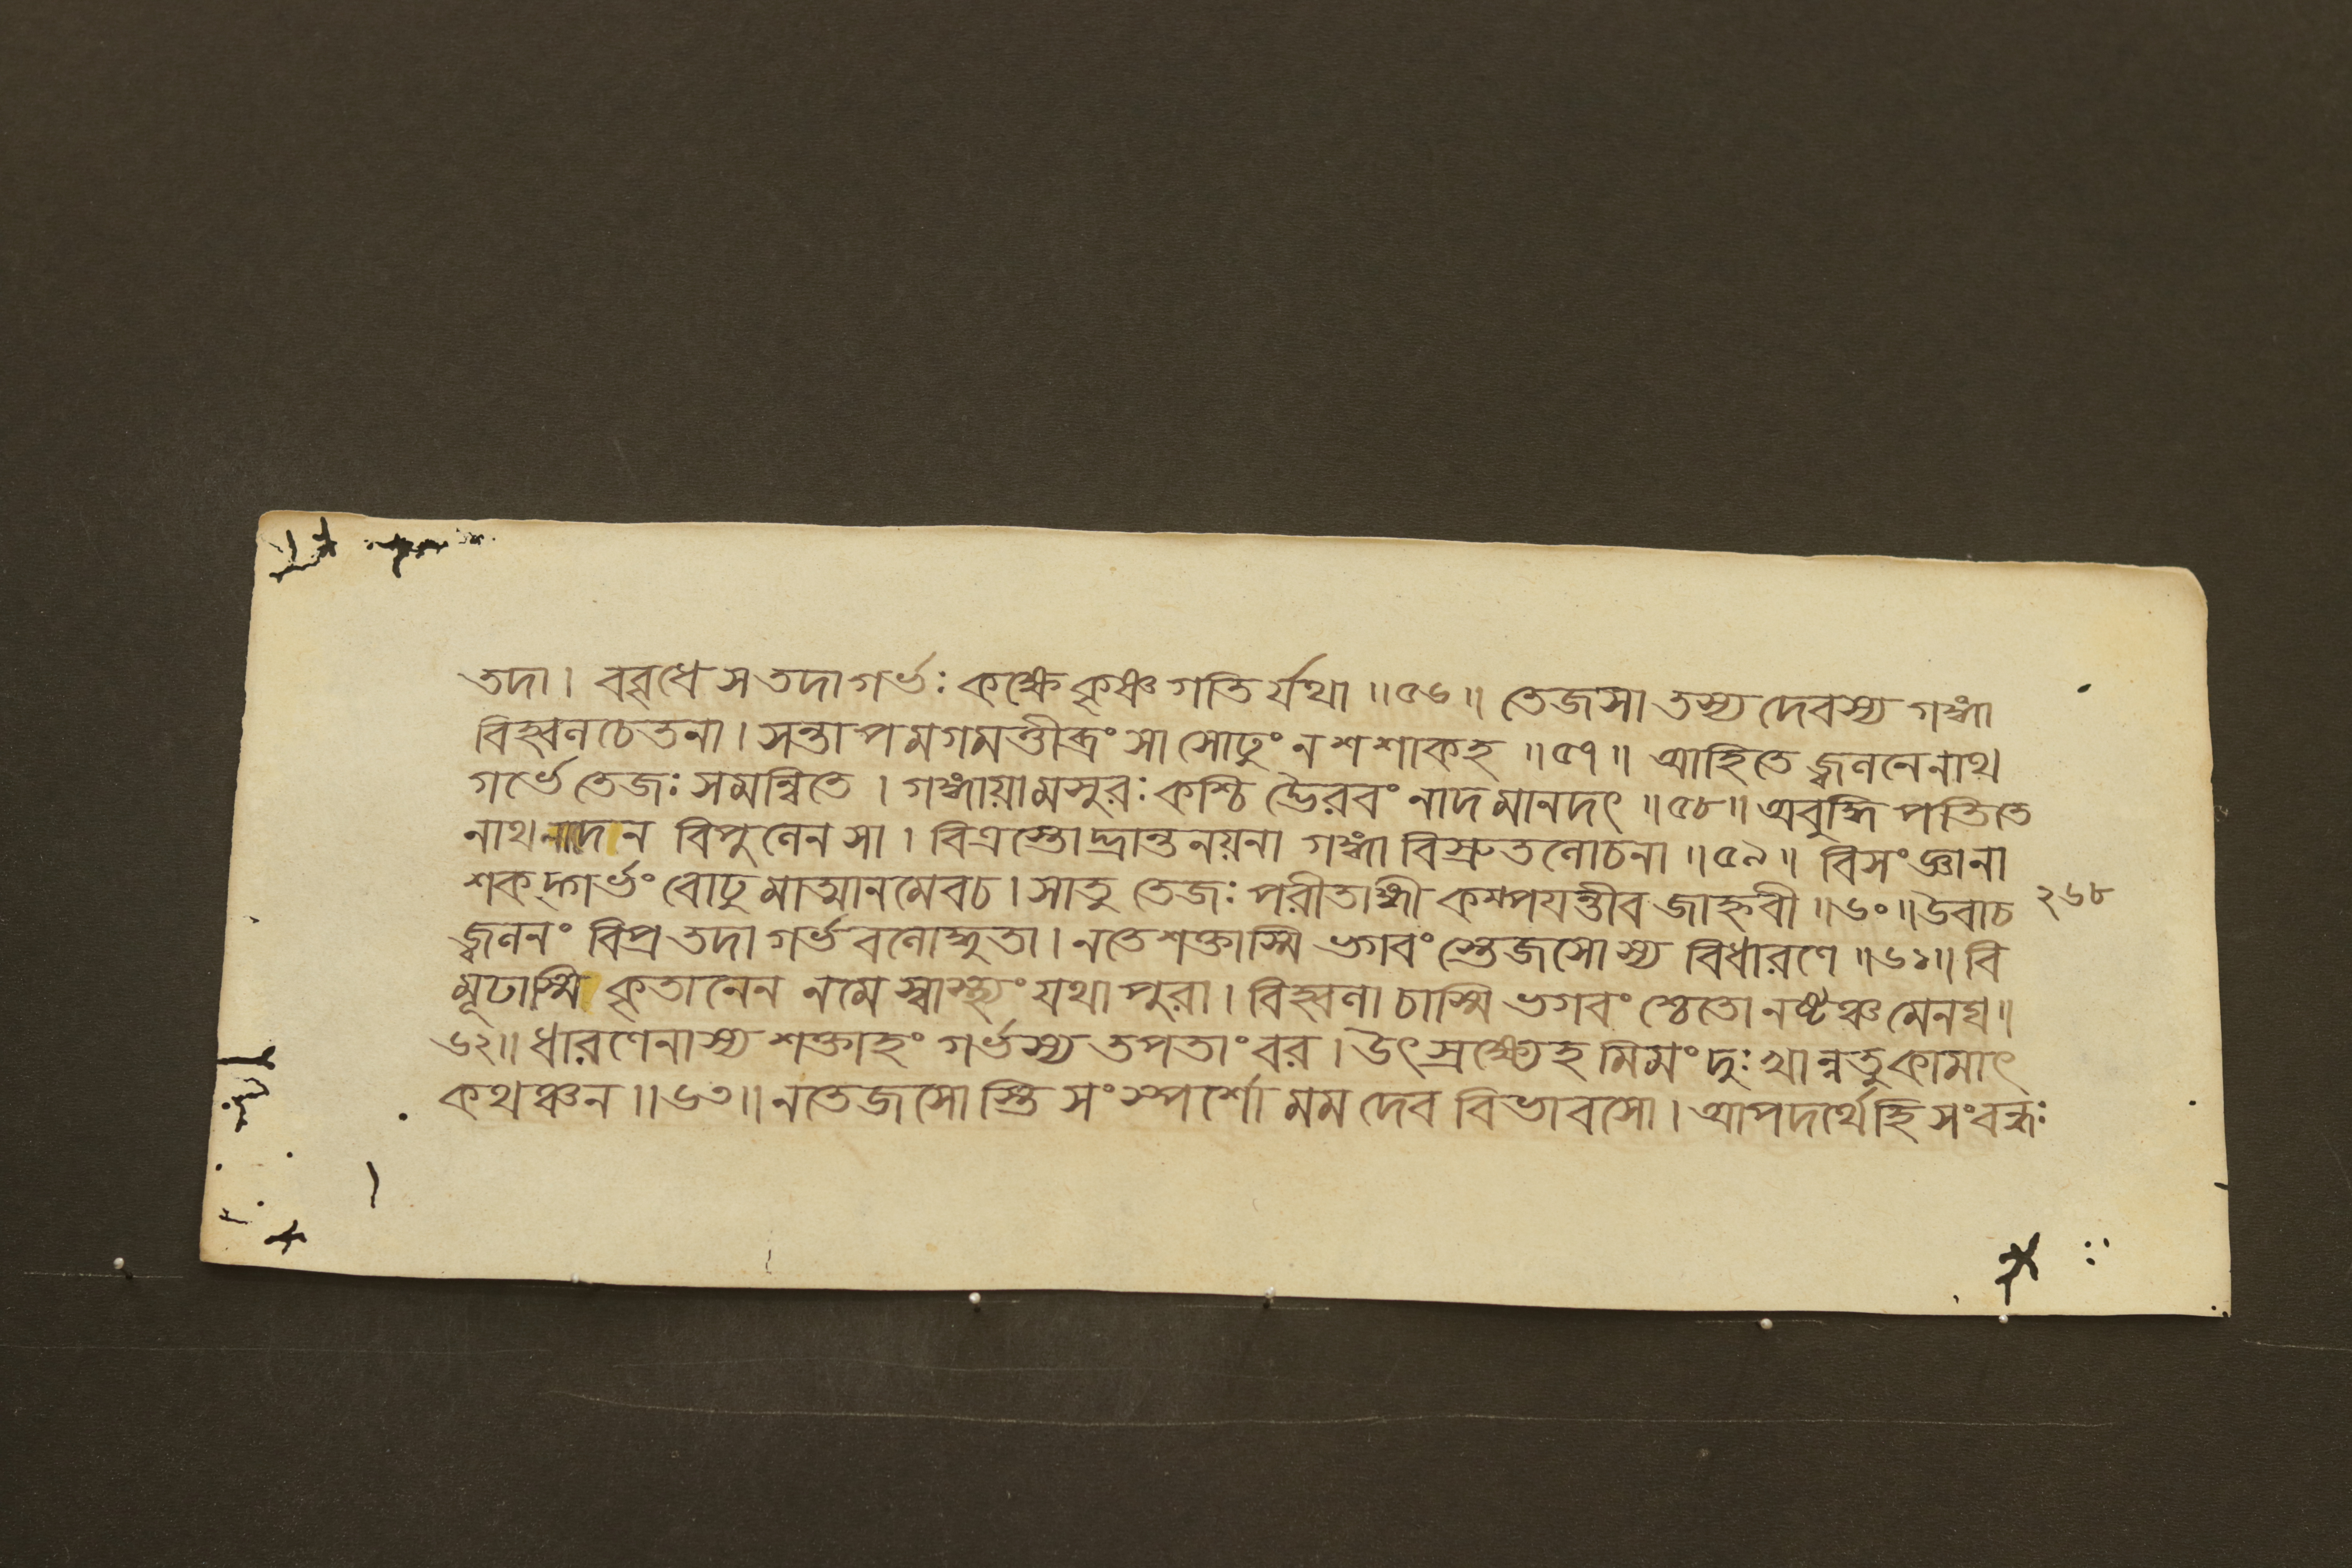 তদা। ববৃধে স তদা গর্ভঃ কক্ষে কৃষ্ণ গতি র্যথা॥৫৬॥ তেজসা তস্য দেবস্য গঙ্গা
বিহ্বলচেতনা। সন্তাপমগমত্তীব্রং সা সোঢুং ন শশাক হ॥৫৭॥ আহিতে জ্বলনেনাথ
গর্ভে তেজঃ সমন্বিতে। গঙ্গায়ামসুরঃ কশ্চি দ্ভৈরবং নাদমানদৎ॥৫৮॥ অবুদ্ধি পতিতে
নাথ নাদেন বিপুলেন সা। বিত্রস্তোদ্ভ্রান্তনয়না গঙ্গা বিস্রুতলোচনা॥৫৯॥ বিসংজ্ঞানা
শকদ্গর্ভং বোঢুমাত্মানমেবচ। সাতু তেজঃ পরীতাঙ্গী কম্পয়ন্তীব জাহ্নবী॥৬০॥ উবাচ
২৬৮
জ্বলনং বিপ্র তদা গর্ভবলোদ্ধুতা। নতে শক্তাস্মি ভগবং স্তেজসোস্য বিধারণে॥৬১॥ বি
মূঢাস্মি কৃতানেন নমে স্বাস্থ্যং যথা পুরা। বিহ্বলা চাস্মি ভগবং শ্চেতো নষ্টঞ্চ মেনঘ॥
৬২॥ ধারণেনাস্য শক্তাহং গর্ভস্য তপতাং বর। উৎস্রক্ষ্যেহমিমং দুঃখান্নতু কামাৎ
কথঞ্চন॥৬৩॥ নতেজসোস্তি সংস্পর্শো মম দেব বিভাবসো। আপদর্থে হি সংবন্ধঃ